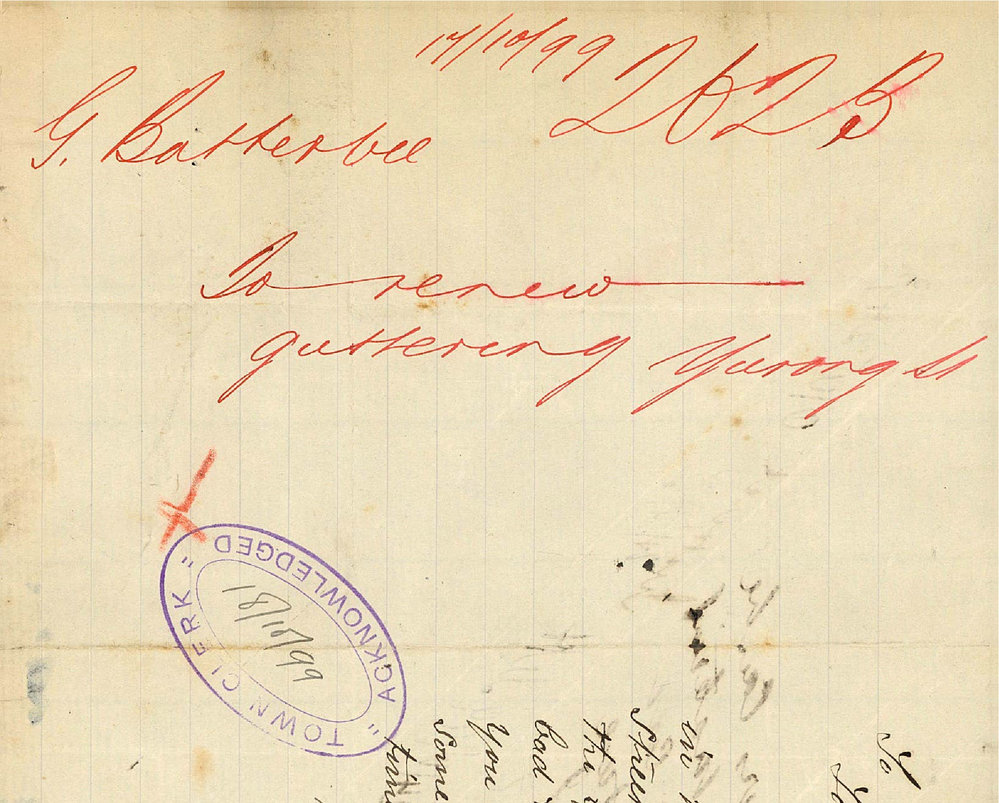 17/10/99 2623
G. Batterbee
To renew
guttering Yurong St
"TOWN CLERK"
ACKNOWLEDGED
18/10/99
To
in
Street
the
bad
You
some
time